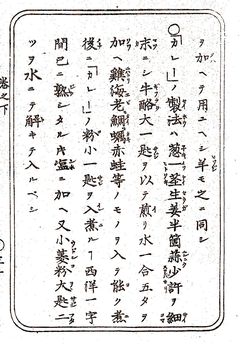 ヲ加ヘテ用ユベシ羊モ之ニ同シ
○「カレー」ノ製法ハ葱一莖生姜半箇蒜少許ヲ細
末ニシ牛酪大一匙ヲ以テ煎リ水一合五勺ヲ
加ヘ雞海老鯛蠣赤蛙等ノモノヲ入テ能ク煮
後ニ「カレー」ノ粉小一匙ヲ入煮ル１西洋一字
間已ニ熟シタルトキ塩ニ加ヘ又小麥粉大匙二
ツヲ水ニテ解キテ入ルベシ
卷之下